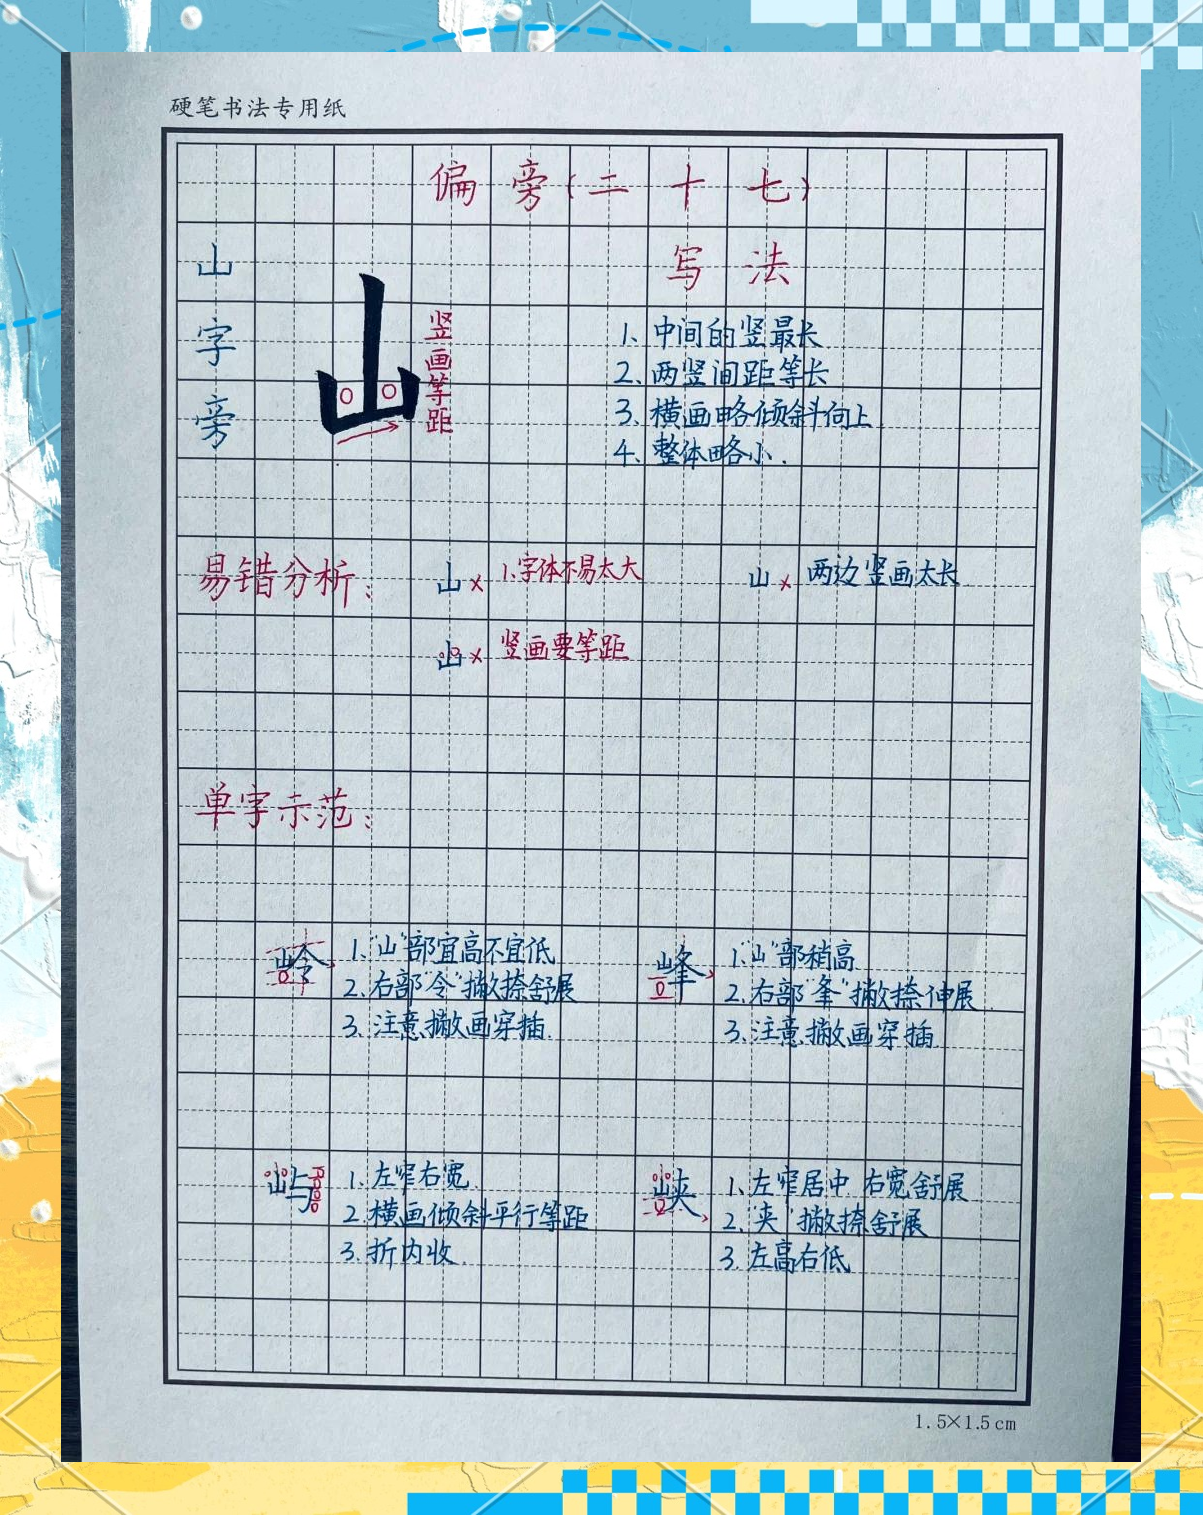 硬笔书法专用纸
偏旁(二十七)
山字旁
山
竖画等距
写法
1、中间的竖最长
2、两竖间距等长
3、横画略倾斜向上
4、整体略小.
易错分析:
山× 1.字体不易太大
山× 两边竖画太长
山× 竖画要等距
单字示范:
岭
1、"山"部宜高不宜低
2、右部"令"撇捺舒展
3、注意撇画穿插.
峰
1、"山"部稍高
2、右部"夆"撇捺伸展.
3、注意撇画穿插.
屿
1、左窄右宽.
2、横画倾斜平行等距
3、折内收.
峡
1、左窄居中 右宽舒展
2、"夹"撇捺舒展
3、左高右低
1.5×1.5cm